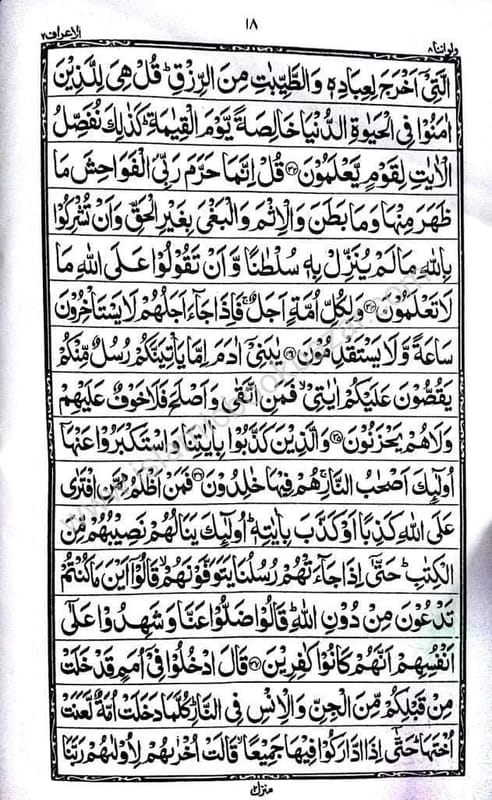 ولواننا ٨ ١٨ الاعراف ٧
الَّتِیْۤ اَخْرَجَ لِعِبَادِهٖ وَالطَّیِّبٰتِ مِنَ الرِّزْقِ ؕ قُلْ هِیَ لِلَّذِیْنَ
اٰمَنُوْا فِی الْحَیٰوةِ الدُّنْیَا خَالِصَةً یَّوْمَ الْقِیٰمَةِ ؕ كَذٰلِكَ نُفَصِّلُ
الْاٰیٰتِ لِقَوْمٍ یَّعْلَمُوْنَ ﴿۳۲﴾ قُلْ اِنَّمَا حَرَّمَ رَبِّیَ الْفَوَاحِشَ مَا
ظَهَرَ مِنْهَا وَمَا بَطَنَ وَالْاِثْمَ وَالْبَغْیَ بِغَیْرِ الْحَقِّ وَاَنْ تُشْرِكُوْا
بِاللّٰهِ مَا لَمْ یُنَزِّلْ بِهٖ سُلْطٰنًا وَّاَنْ تَقُوْلُوْا عَلَی اللّٰهِ مَا
لَا تَعْلَمُوْنَ ﴿۳۳﴾ وَلِكُلِّ اُمَّةٍ اَجَلٌ ۚ فَاِذَا جَآءَ اَجَلُهُمْ لَا یَسْتَاْخِرُوْنَ
سَاعَةً وَّلَا یَسْتَقْدِمُوْنَ ﴿۳۴﴾ یٰبَنِیْۤ اٰدَمَ اِمَّا یَاْتِیَنَّكُمْ رُسُلٌ مِّنْكُمْ
یَقُصُّوْنَ عَلَیْكُمْ اٰیٰتِیْ ۙ فَمَنِ اتَّقٰی وَاَصْلَحَ فَلَا خَوْفٌ عَلَیْهِمْ
وَلَا هُمْ یَحْزَنُوْنَ ﴿۳۵﴾ وَالَّذِیْنَ كَذَّبُوْا بِاٰیٰتِنَا وَاسْتَكْبَرُوْا عَنْهَاۤ
اُولٰٓئِكَ اَصْحٰبُ النَّارِ ۚ هُمْ فِیْهَا خٰلِدُوْنَ ﴿۳۶﴾ فَمَنْ اَظْلَمُ مِمَّنِ افْتَرٰی
عَلَی اللّٰهِ كَذِبًا اَوْ كَذَّبَ بِاٰیٰتِهٖ ؕ اُولٰٓئِكَ یَنَالُهُمْ نَصِیْبُهُمْ مِّنَ
الْكِتٰبِ ؕ حَتّٰۤی اِذَا جَآءَتْهُمْ رُسُلُنَا یَتَوَفَّوْنَهُمْ ۙ قَالُوْۤا اَیْنَ مَا كُنْتُمْ
تَدْعُوْنَ مِنْ دُوْنِ اللّٰهِ ؕ قَالُوْا ضَلُّوْا عَنَّا وَشَهِدُوْا عَلٰۤی
اَنْفُسِهِمْ اَنَّهُمْ كَانُوْا كٰفِرِیْنَ ﴿۳۷﴾ قَالَ ادْخُلُوْا فِیْۤ اُمَمٍ قَدْ خَلَتْ
مِنْ قَبْلِكُمْ مِّنَ الْجِنِّ وَالْاِنْسِ فِی النَّارِ ؕ كُلَّمَا دَخَلَتْ اُمَّةٌ لَّعَنَتْ
اُخْتَهَا ؕ حَتّٰۤی اِذَا ادَّارَكُوْا فِیْهَا جَمِیْعًا ۙ قَالَتْ اُخْرٰىهُمْ لِاُوْلٰىهُمْ رَبَّنَا
منزل ٢